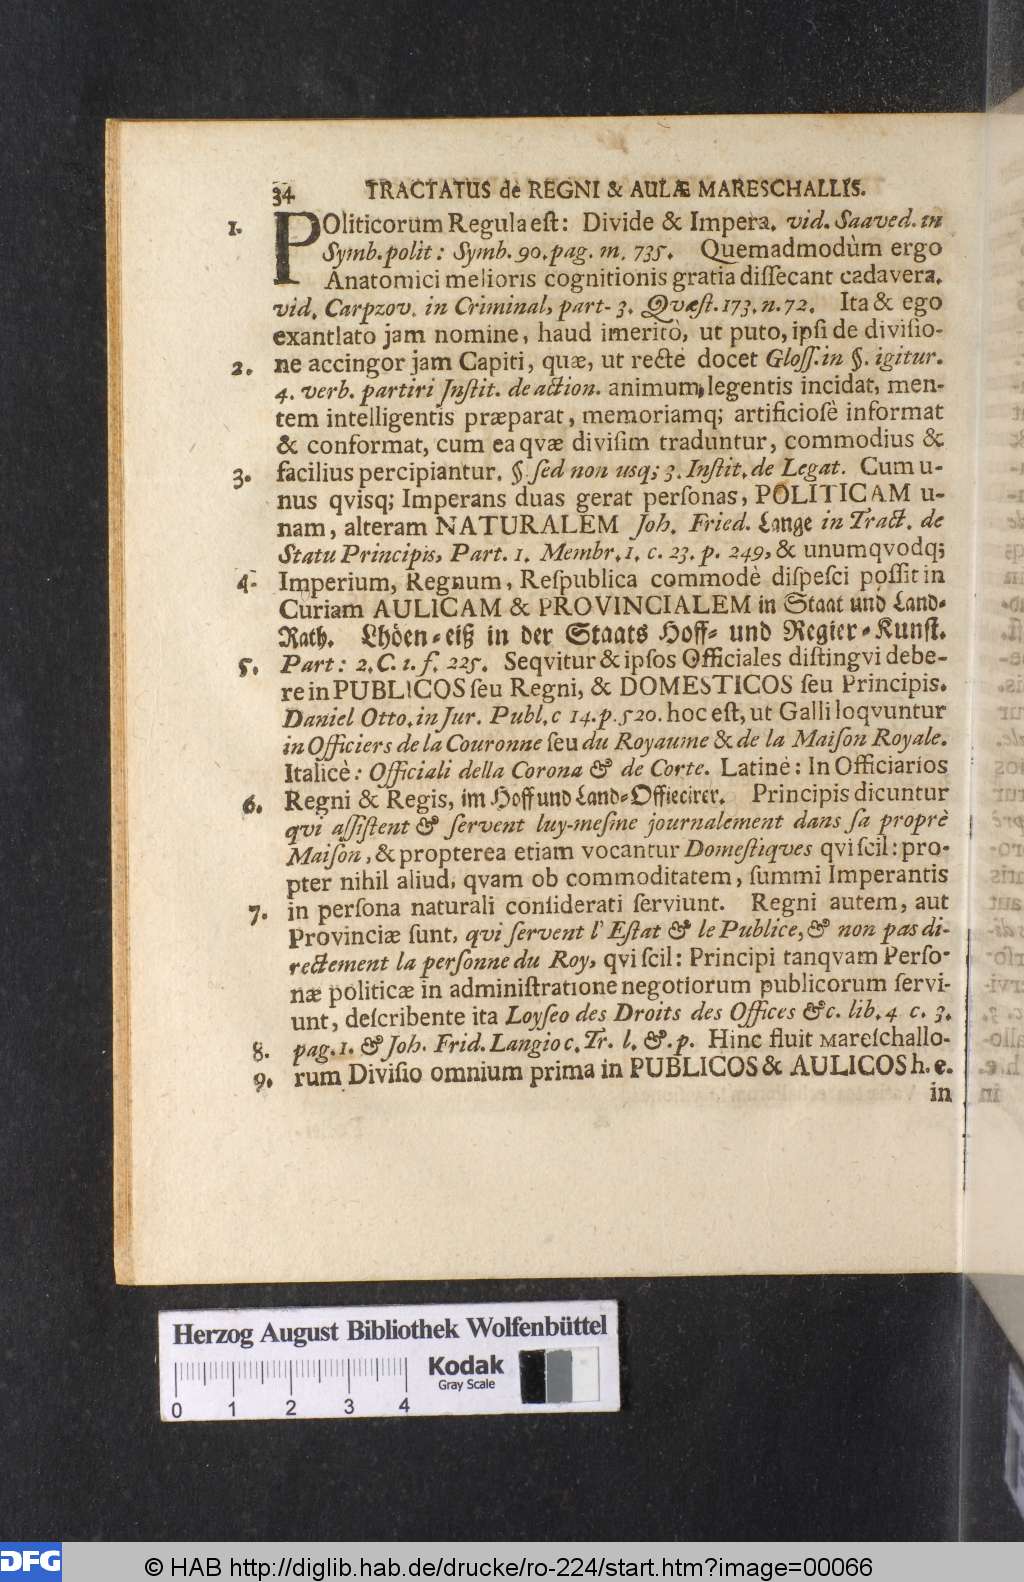 34 TRACTATUS de REGNI & AULÆ MARESCHALLIS.
1. POliticorum Regula eſt: Divide & Impera. vid. Saaved. in
Symb. polit: Symb. 90. pag. m. 735. Quemadmodùm ergo
Anatomici melioris cognitionis gratia diſſecant cadavera.
vid. Carpzov. in Criminal, part- 3. Qvæſt. 173. n. 72. Ita & ego
exantlato jam nomine, haud imeritò, ut puto, ipſi de diviſio-
2. ne accingor jam Capiti, quæ, ut rectè docet Gloſſ. in §. igitur.
4. verb. partiri Inſtit. de action. animum legentis incidat, men-
tem intelligentis præparat, memoriamq; artificioſè informat
& conformat, cum ea qvæ diviſim traduntur, commodius &
3. facilius percipiantur. §. ſed non usq; 3. Inſtit. de Legat. Cum u-
nus qvisq; Imperans duas gerat perſonas, POLITICAM u-
nam, alteram NATURALEM Joh. Fried. Lange in Tract. de
Statu Principis, Part. 1. Membr. 1. c. 23. p. 249, & unumqvodq;
4. Imperium, Regnum, Reſpublica commodè diſpeſci poſſit in
Curiam AULICAM & PROVINCIALEM in Staat und Land-
Rath. Lhöen-eiß in der Staats Hoff- und Regier-Kunſt.
5. Part: 2. C. 1. f. 225. Seqvitur & ipſos Officiales diſtingvi debe-
re in PUBLICOS ſeu Regni, & DOMESTICOS ſeu Principis.
Daniel Otto. in Jur. Publ. c 14. p. 520. hoc eſt, ut Galli loqvuntur
in Officiers de la Couronne ſeu du Royaume & de la Maiſon Royale.
Italicè: Officiali della Corona & de Corte. Latinè: In Officiarios
6. Regni & Regis, im Hoff und Land-Offiecirer. Principis dicuntur
qvi aſſiſtent & ſervent luy-meſme journalement dans ſa proprè
Maiſon, & propterea etiam vocantur Domeſtiqves qvi ſcil: pro-
pter nihil aliud, qvam ob commoditatem, ſummi Imperantis
7. in perſona naturali conſiderati ſerviunt. Regni autem, aut
Provinciæ ſunt, qvi ſervent l' Eſtat & le Publice, & non pas di-
rectement la perſonne du Roy, qvi ſcil: Principi tanqvam Perſo-
næ politicæ in adminiſtratione negotiorum publicorum ſervi-
unt, deſcribente ita Loyſeo des Droits des Offices &c. lib. 4 c. 3.
8. pag. 1. & Joh. Frid. Langio c. Tr. l. &. p. Hinc fluit Mareſchallo-
9. rum Diviſio omnium prima in PUBLICOS & AULICOS h. e.
in
Herzog August Bibliothek Wolfenbüttel
Kodak
Gray Scale
0 1 2 3 4
DFG
© HAB http://diglib.hab.de/drucke/ro-224/start.htm?image=00066